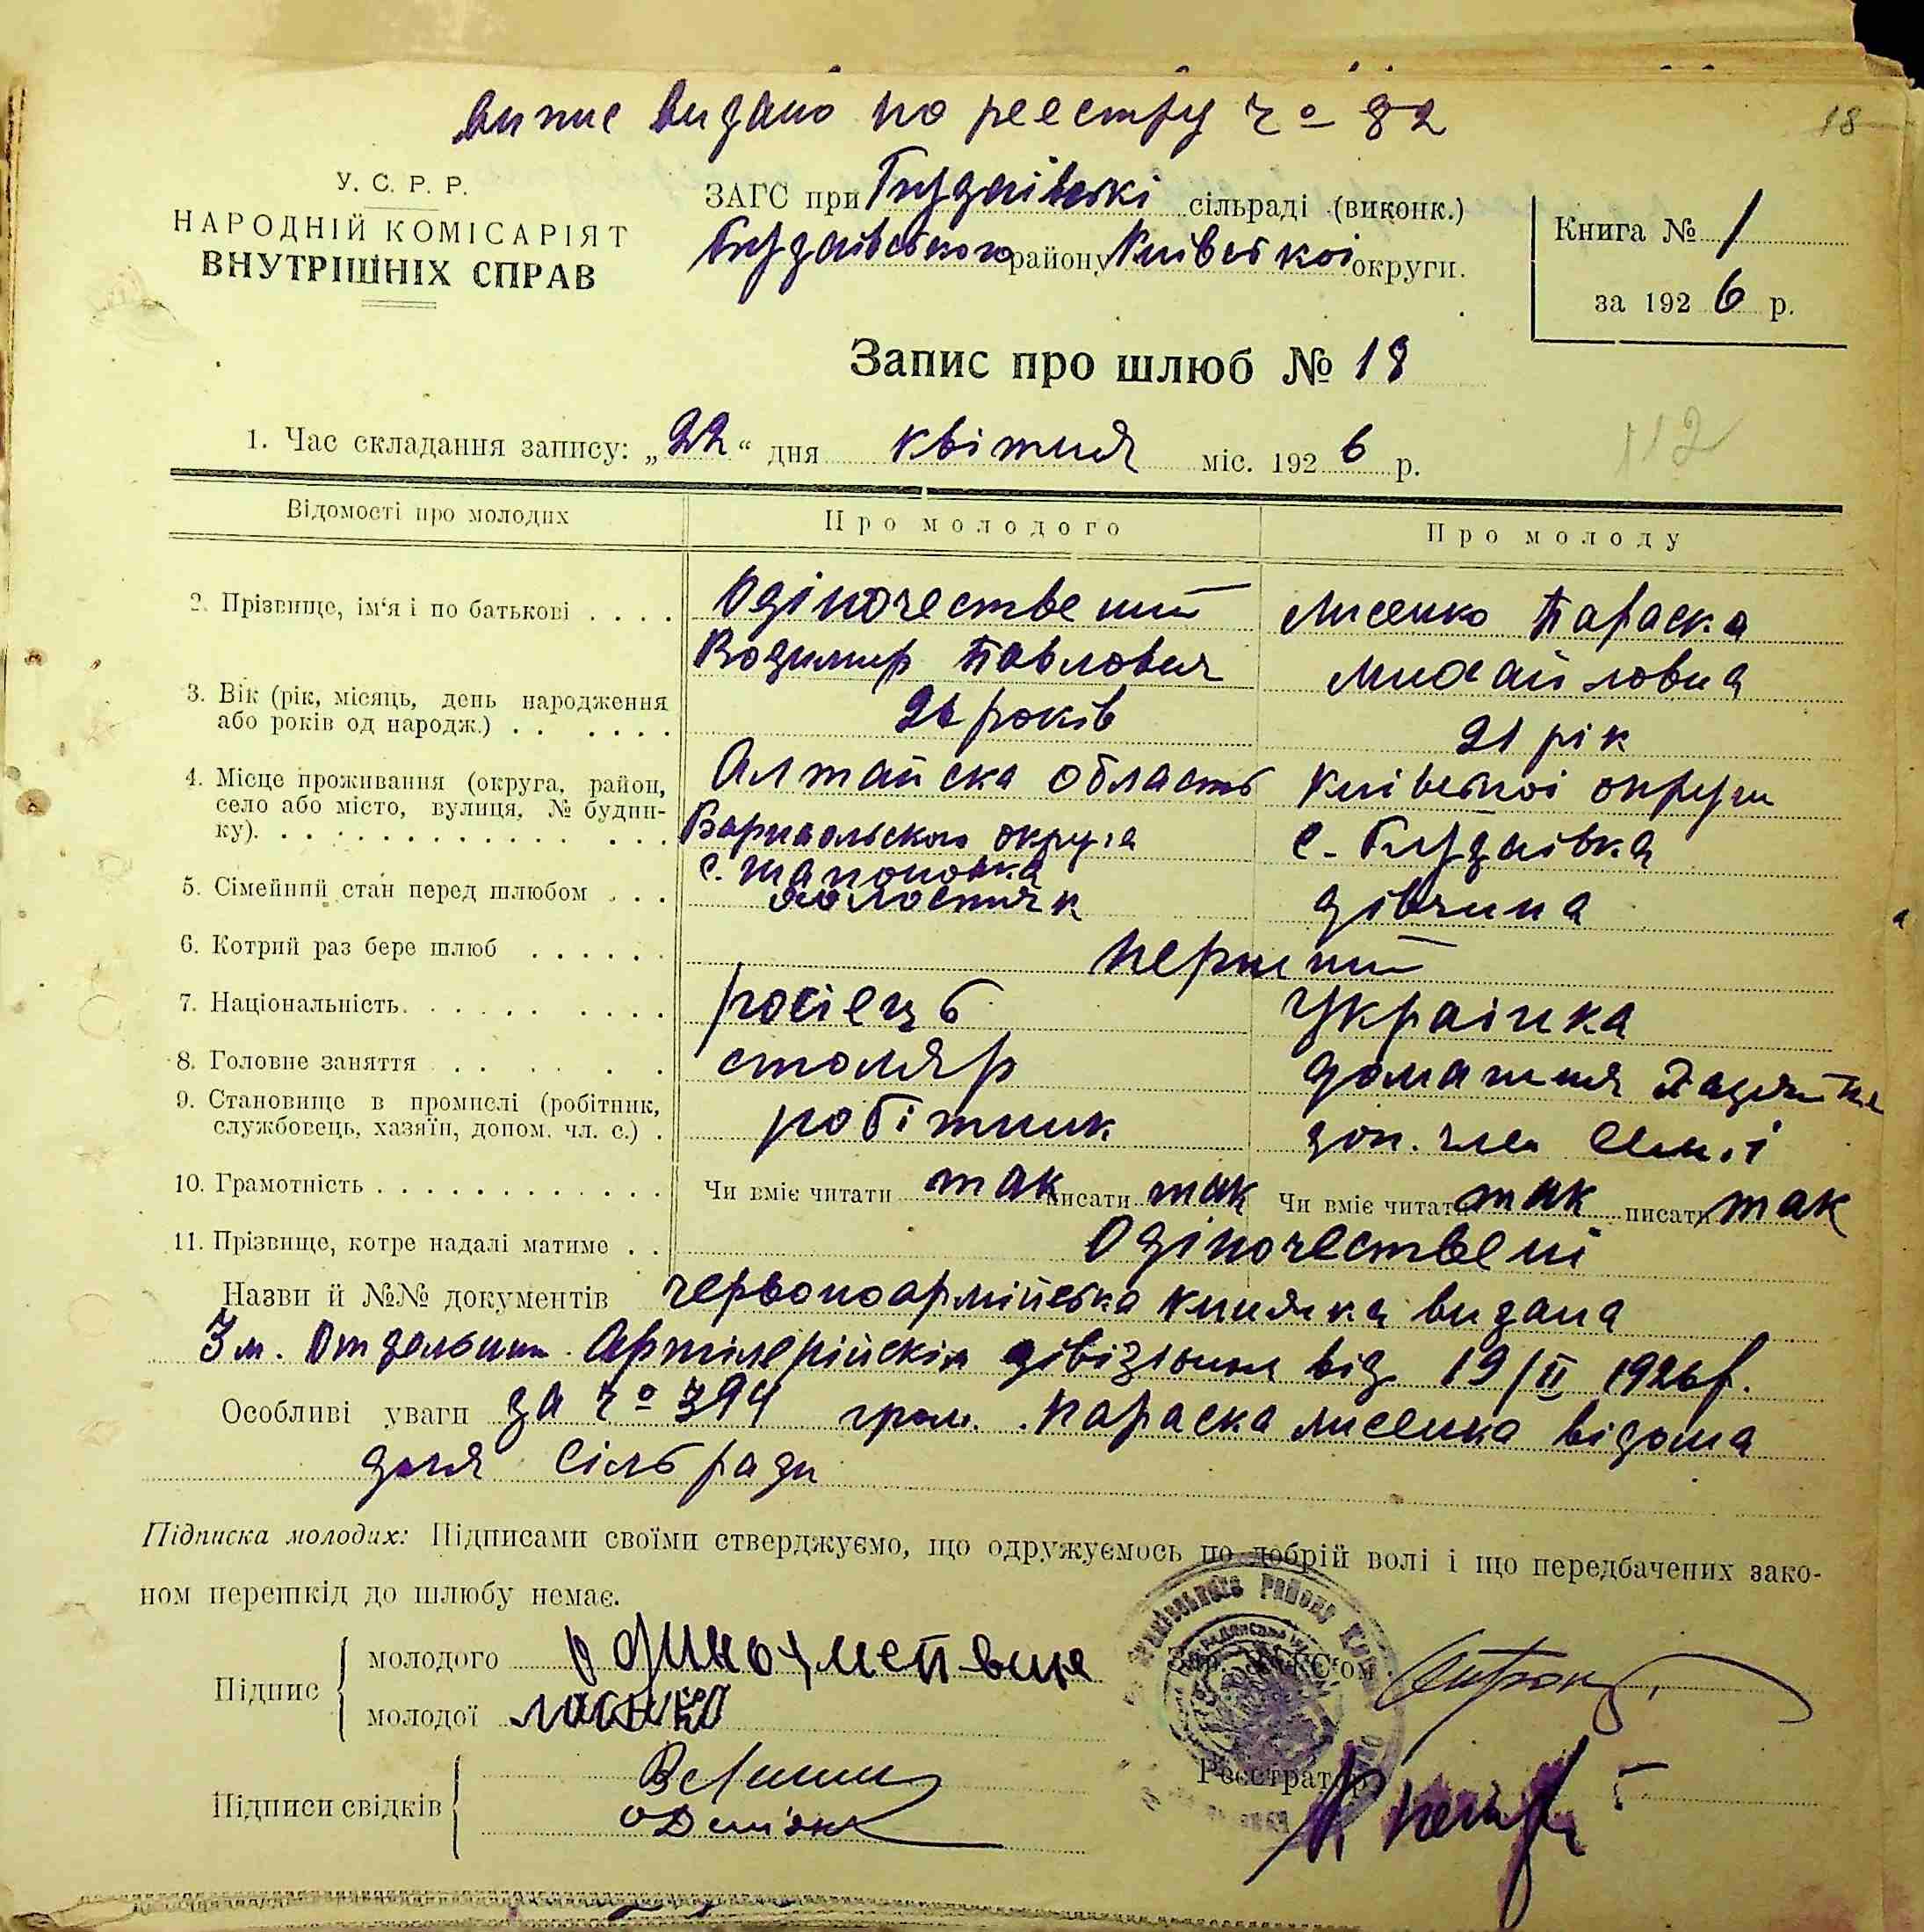 випис видано по реестру ч о 82
18
У. С. Р. Р.
НАРОДНІЙ КОМІСАРІЯТ
ВНУТРІШНІХ СПРАВ
ЗАГС при Гуздаівські сільраді (виконк.)
району Київскоі округи.
Книга № 1
за 1926 р.
Запис про шлюб № 18
112
1. Час складання запису: „22“ дня квітня міс. 1926 р.
Відомості про молодих Про молодого Про молоду
2. Прізвище, ім‘я і по батькові . . . . Одіночественний Лисенко Параска
Водимир Павлович Михайловна
3. Вік (рік, місяць, день народження
або років од народж.) . . . . . . років 21 рік
4. Місце проживання (округа, район,
село або місто, вулиця, № будин-
ку). . . . . . . . . . . . . . . Алтайска область Київськоі округи
округа с.
с.
5. Сімейний стан перед шлюбом . . . холостяк дівчина
6. Котрий раз бере шлюб . . . . . . перший
7. Національність. . . . . . . . . . . росіець Українка
8. Головне заняття . . . . . . . столяр домашня
9. Становище в промислі (робітник,
службовець, хазяїн, допом. чл. с.) . робітник доп. член семі
10. Грамотність . . . . . . . . . . . . . Чи вміє читати так писати так Чи вміє читати так писати так
11. Прізвище, котре надалі матиме . . Одіночествені
Назви й №№ документів червоноармійська книжка видана
3 м. Отдельним Артілерійскім дівізіоном від 19/II 1926р.
Особливі уваги за ч о 394 гром. Параска Лисенка відома
для сільради
Підписка молодих: Підписами своїми стверджуємо, що одружуємось по добрій волі і що передбачених зако-
ном перешкід до шлюбу немає.
Підпис молодого
молодої Лисенко
Зав. ЗАГС‘ом
Підписи свідків
Реєстратор